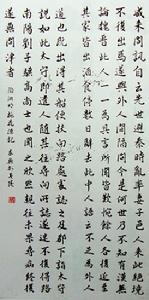 咸来問訊自云先世避秦時亂率妻子邑人来此絕境
不復出焉遂與外人間隔問今是何世乃不知有漢無
論魏晉此人一一為具言所聞皆歎惋餘人各復延至
其家皆出酒食停數日辭去此中人語云不足為外人
道也既出得其船便扶向路處處誌之及郡下詣太守
說如此太守即遣人隨其往尋向所誌遂迷不復得路
南陽劉子驥高尚士也聞之欣然規往未果尋病終後
遂無問津者 陶淵明桃花源記